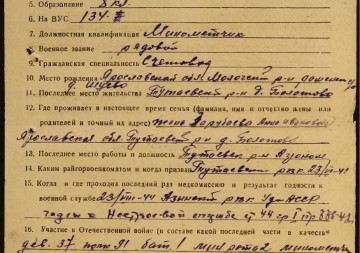 5. Образование 8 кл.
6. На ВУС 134
7. Должностная квалификация Минометчик
8. Военное звание рядовой
9. Гражданская специальность Счетовод
10. Место рождения Ярославской обл. Мологский р-н
д.
11. Последнее место жительства Тутаевский р-н д. Болотово
12. Где проживает в настоящее время семья (фамилия, имя и отчество жены или
родителей и точный их адрес) жена Анна Ивановна
Ярославская обл. Тутаевский р-н д. Болотово
13. Последнее место работы и должность Тутаевск. р-н
14. Каким райгорвоенкоматом и когда призван Тутаевским рвк. 23/VIII-41
15. Когда и где проходил последний раз медкомиссию и результат годности к
военной службе 23/VIII-41 рвк Уд. АССР
годен к Нестроевой службе ст 44 гр I пр 336-42 г.
16. Участие в Отечественной войне (в составе какой последней части в качестве
див. 37 полк 91 бат. 1 мин рота 2 минометчик